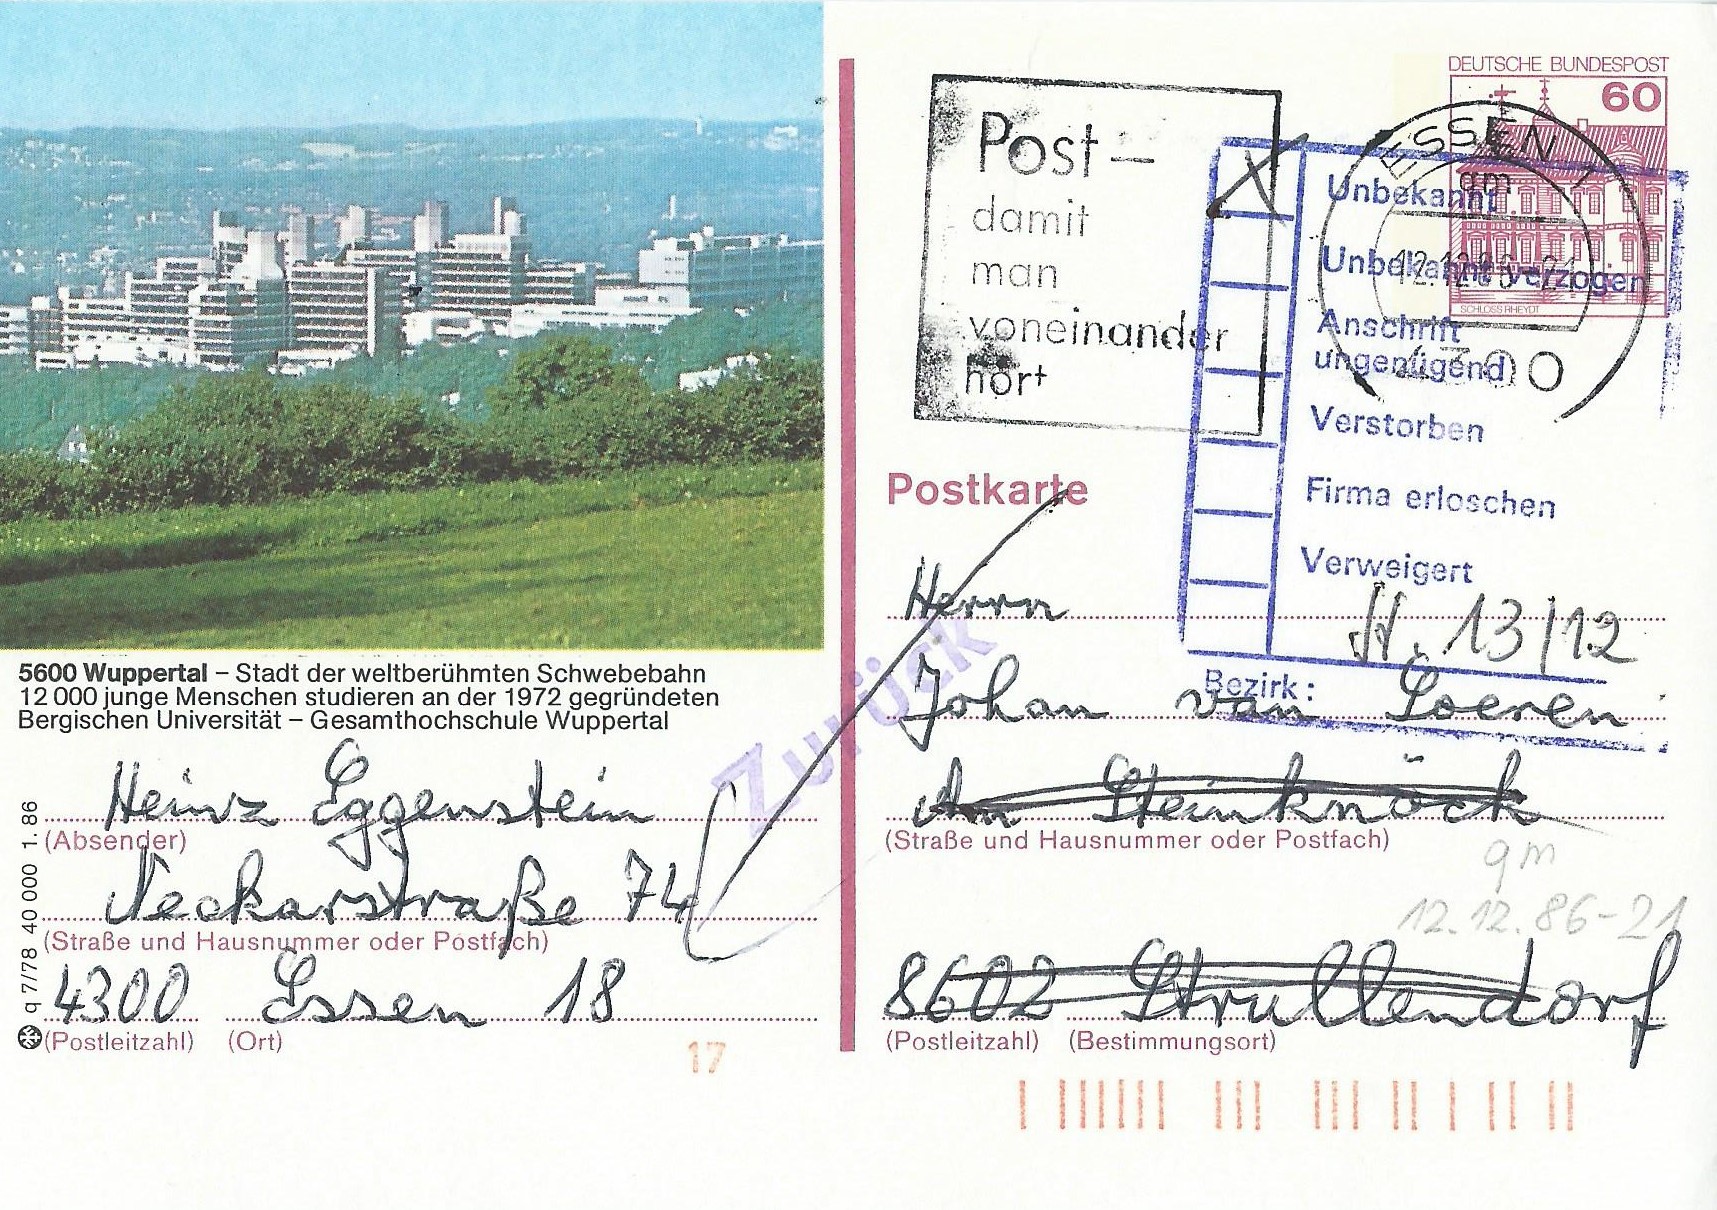 DEUTSCHE BUNDESPOST
60
SCHLOSS RHEYDT
ESSEN 1
gm
12.12.86-21
Post –
damit
man
voneinander
hört
Unbekannt
Unbekannt verzogen
Anschrift
ungenügend
Verstorben
Firma erloschen
Verweigert
Bezirk:
13/12
Postkarte
Herrn
Johan van Loeren
An Steinknöck
(Straße und Hausnummer oder Postfach)
gm
12.12.86-21
8602 Strullendorf
(Postleitzahl) (Bestimmungsort)
Zurück
5600 Wuppertal – Stadt der weltberühmten Schwebebahn
12 000 junge Menschen studieren an der 1972 gegründeten
Bergischen Universität – Gesamthochschule Wuppertal
Heinz Eggenstein
(Absender)
Neckarstraße 74
(Straße und Hausnummer oder Postfach)
4300 Essen 18
(Postleitzahl) (Ort)
q 7/78 40 000 1. 86
17